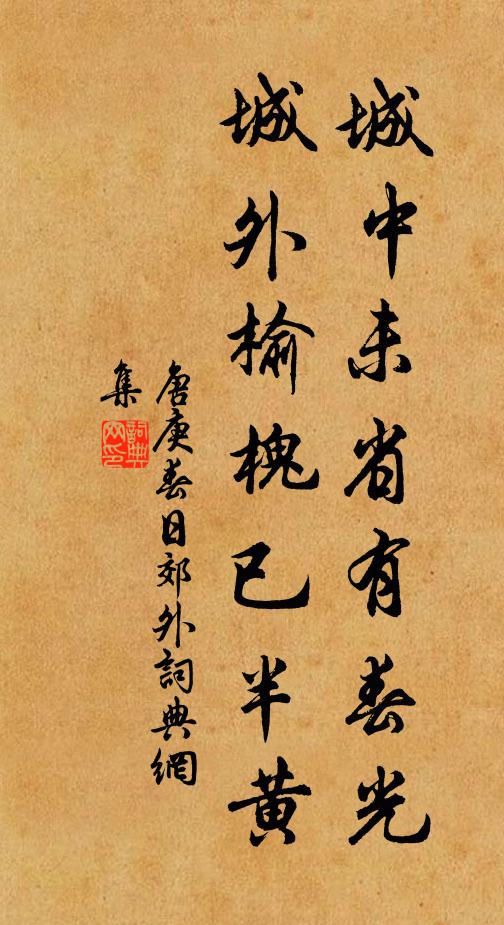 城中未省有春光
城外榆槐已半黄
唐庚春日郊外詞典網
集
詞典
网印